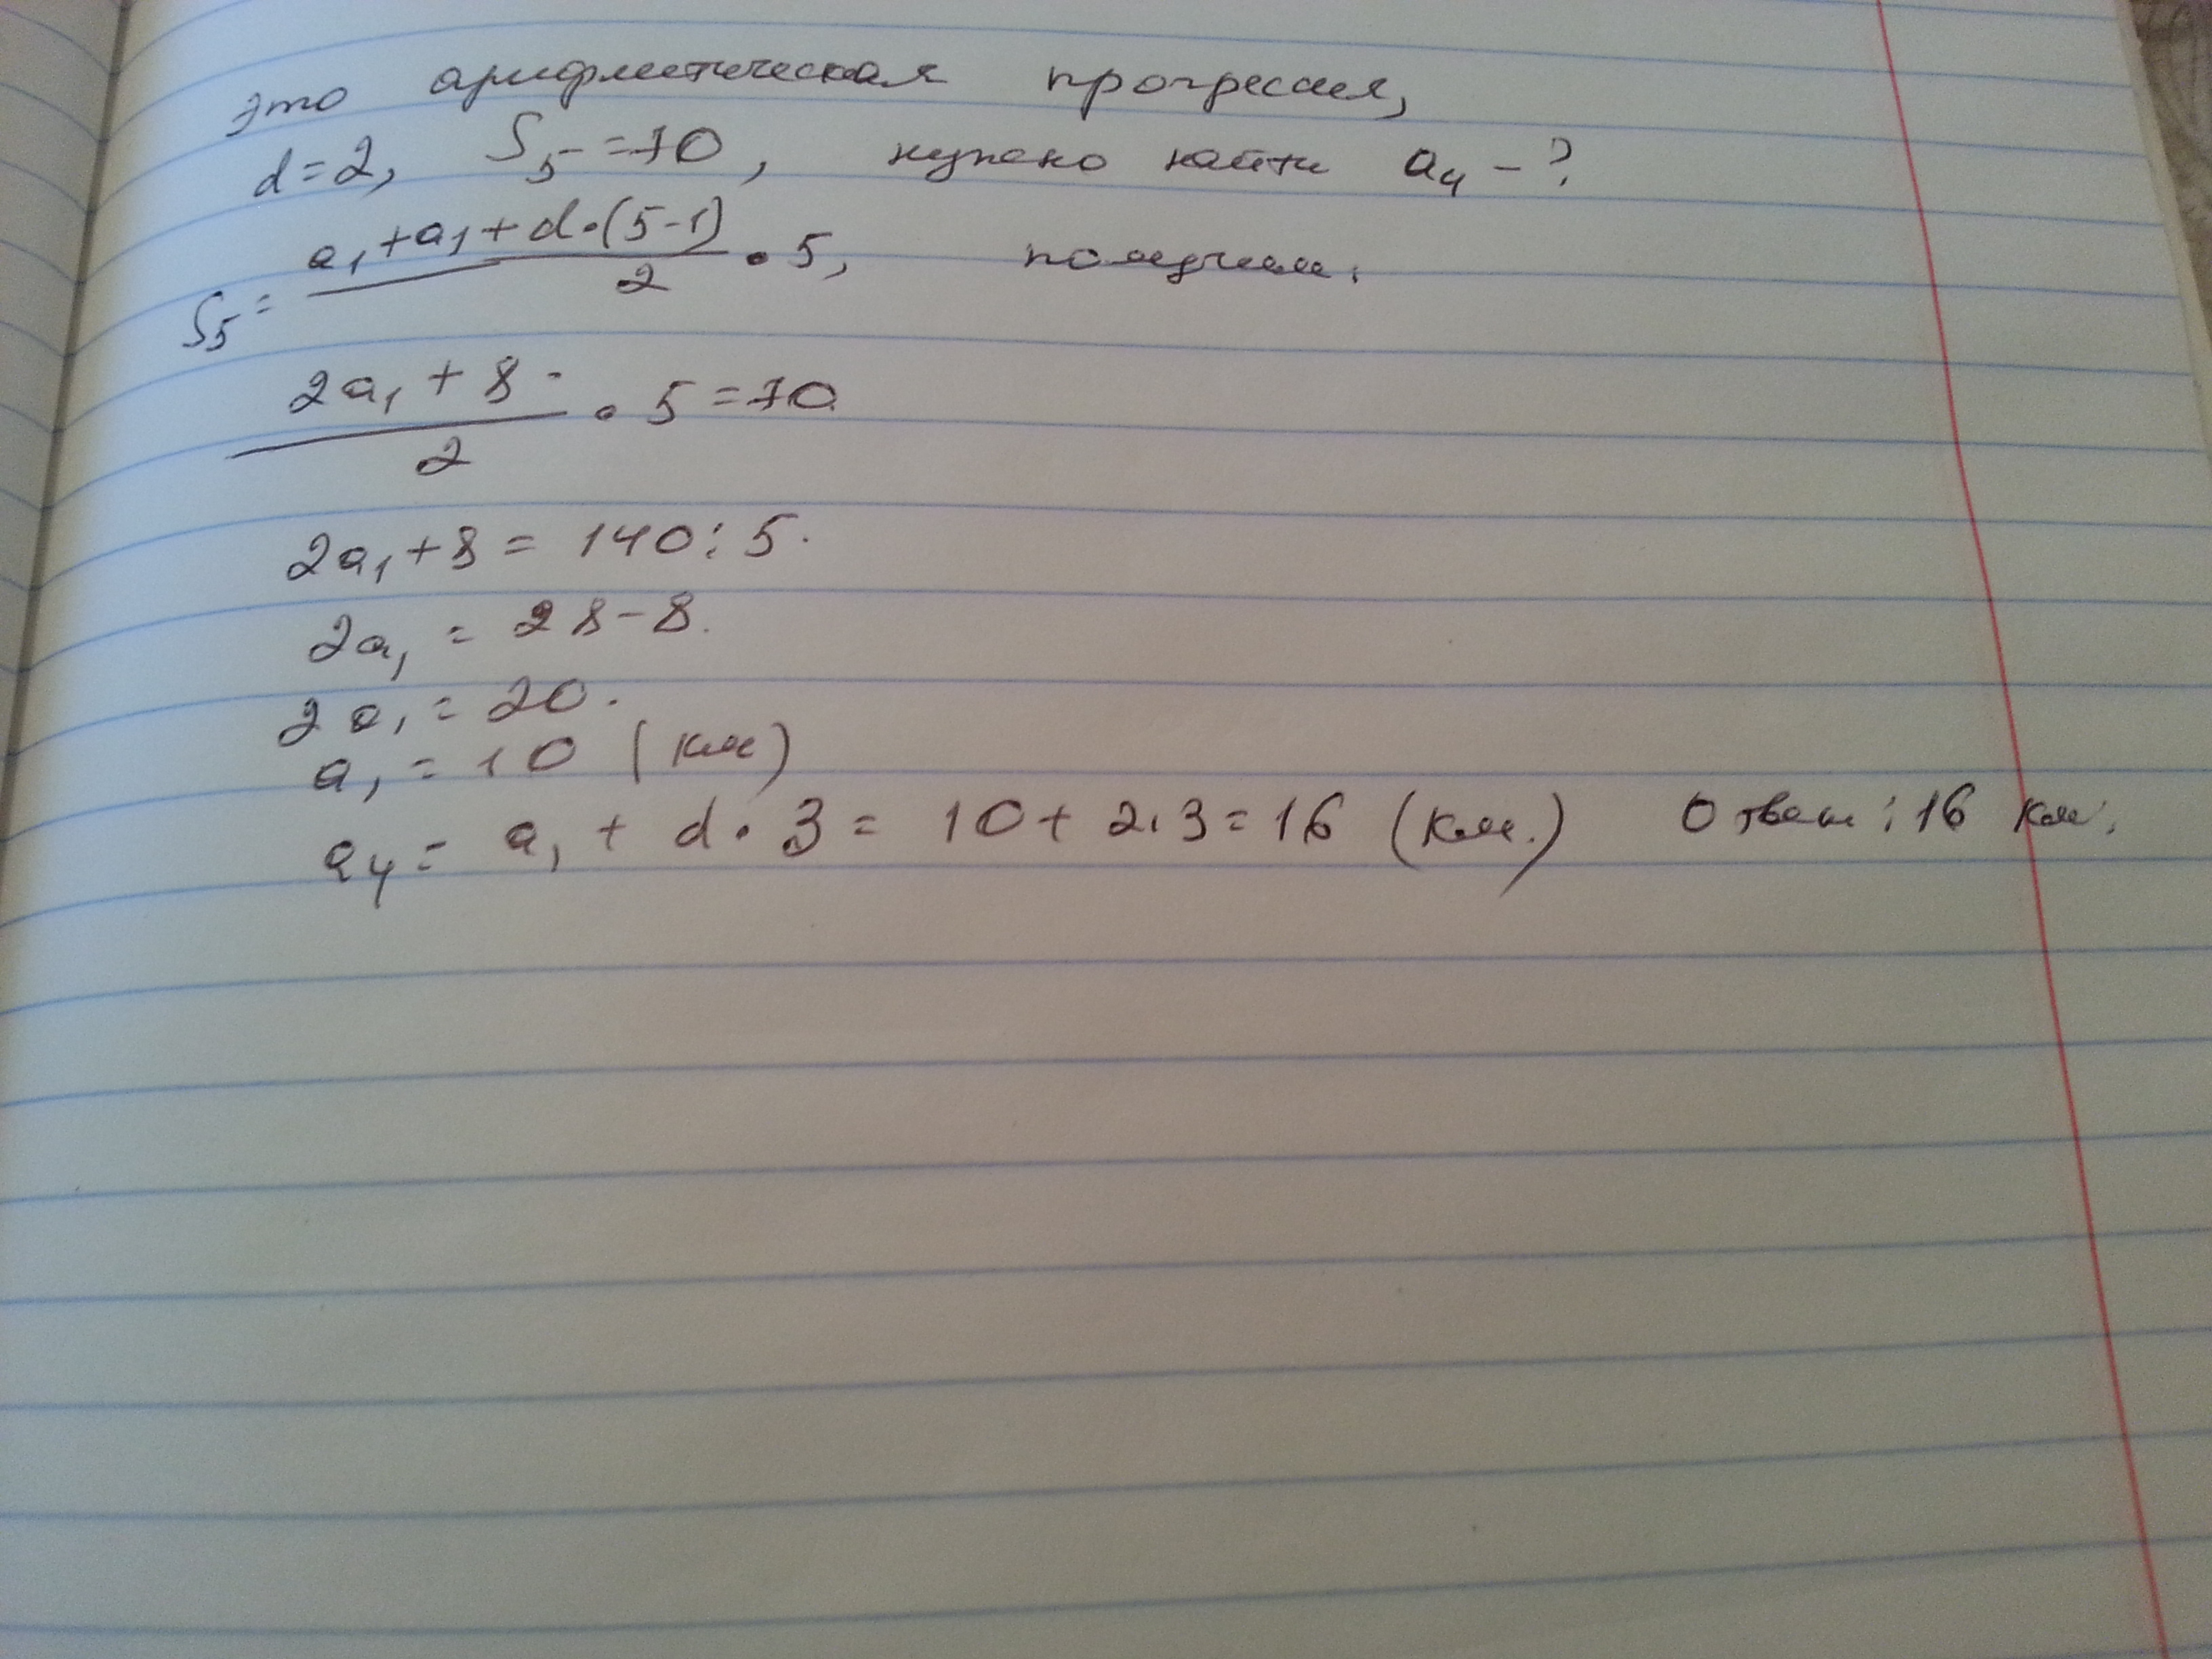 это арифметическая прогрессия,
d=2, S₅=70, нужно найти a₄ - ?
S₅ = (a₁+a₁+d·(5-1))/2 · 5, получим:
(2a₁+8)/2 · 5=70
2a₁+8 = 140:5.
2a₁ = 28-8.
2a₁ = 20.
a₁ = 10 (км)
a₄ = a₁ + d·3 = 10+2·3=16 (км.) Ответ: 16 км.